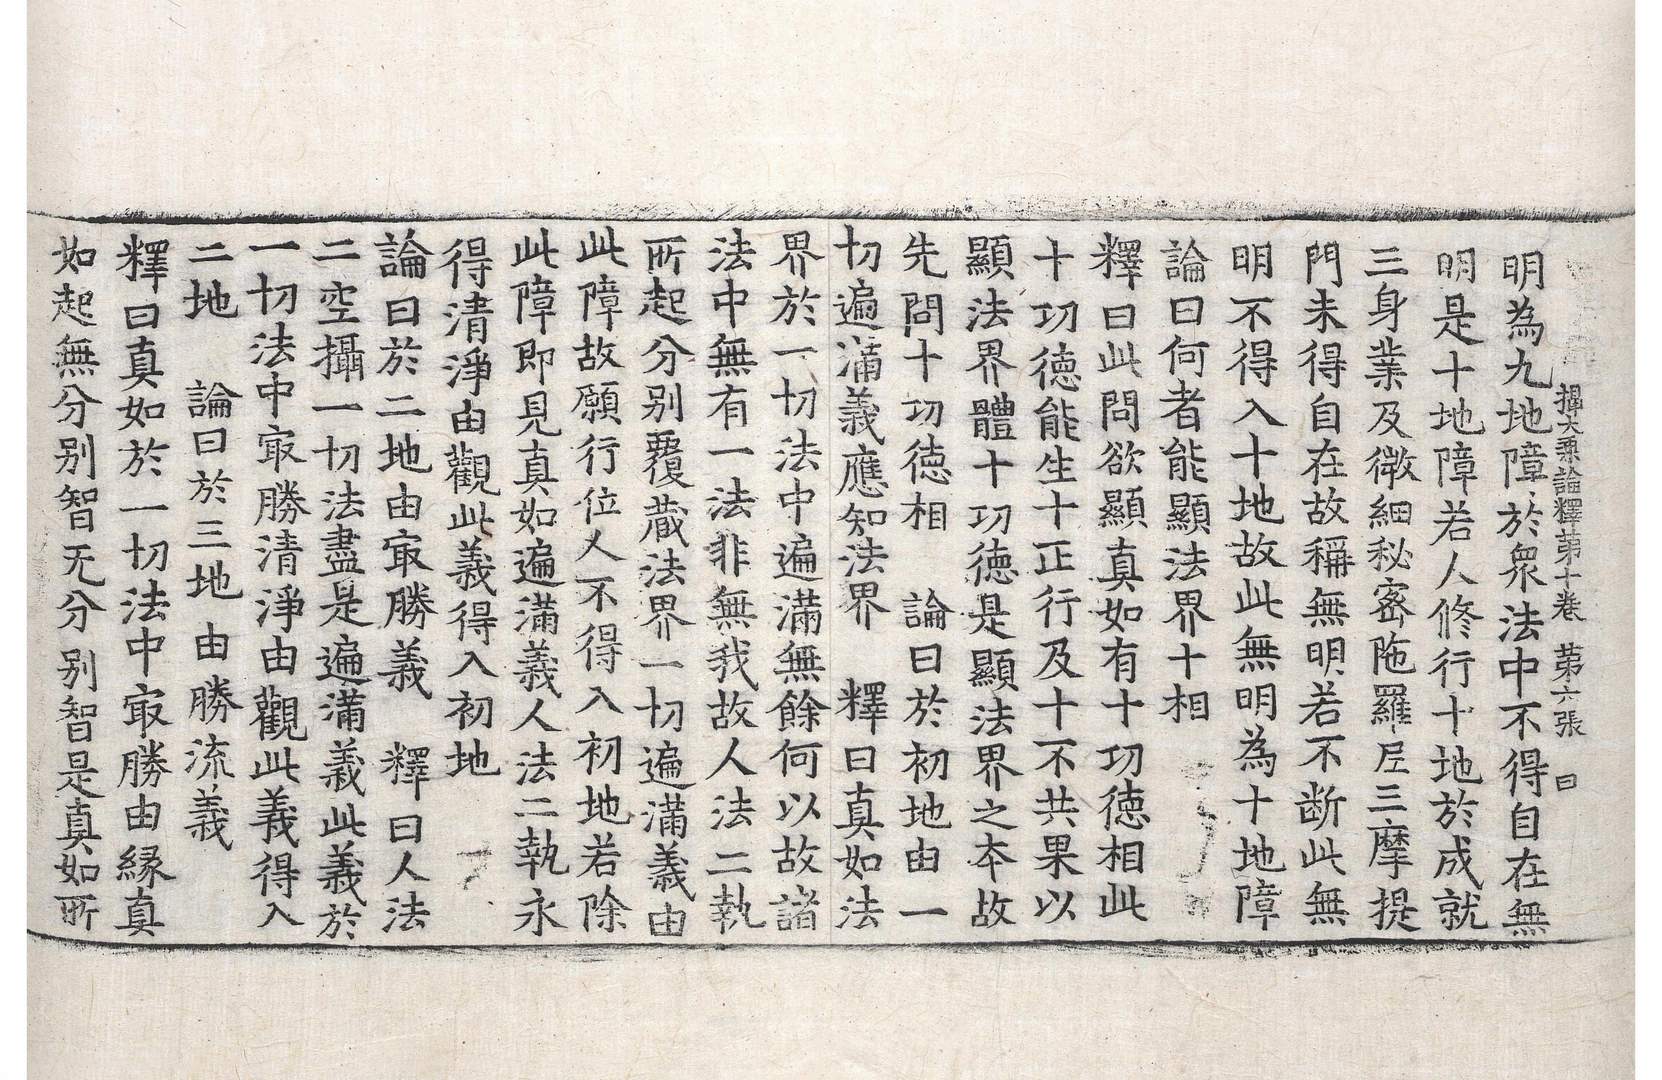 攝大乗論釋第十卷 第六張 曰
明為九地障於衆法中不得自在無
明是十地障若人修行十地於成就
三身業及微細秘密陁羅尼三摩提
門未得自在故稱無明若不断此無
明不得入十地故此無明為十地障
論曰何者能顯法界十相
釋曰此問欲顯真如有十功徳相此
十功徳能生十正行及十不共果以
顯法界體十功徳是顯法界之夲故
先問十功徳相 論曰於初地由一
切遍滿義應知法界 釋曰真如法
界於一切法中遍滿無餘何以故諸
法中無有一法非無我故人法二執
所起分别覆蔵法界一切遍滿義由
此障故願行位人不得入初地若除
此障即見真如遍滿義人法二執永
得清淨由觀此義得入初地
論曰於二地由㝡勝義 釋曰人法
二空攝一切法盡是遍滿義此義於
一切法中㝡勝清淨由觀此義得入
二地 論曰於三地由勝流義
釋曰真如於一切法中㝡勝由縁真
如起無分别智无分别智是真如所